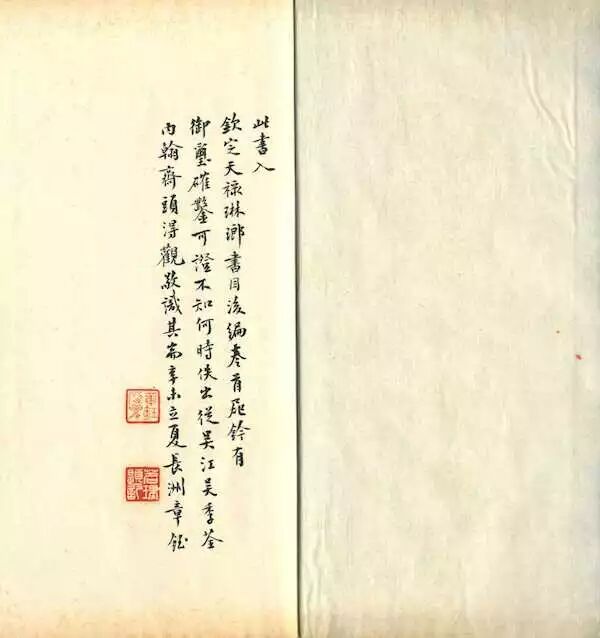 此書入
欽定天祿琳瑯書目後編卷首尾鈐有
御璽確鑿可證不知何時佚出從吳江吳季荃
內翰齋頭得觀敬識其耑辛未立夏長洲章鈺